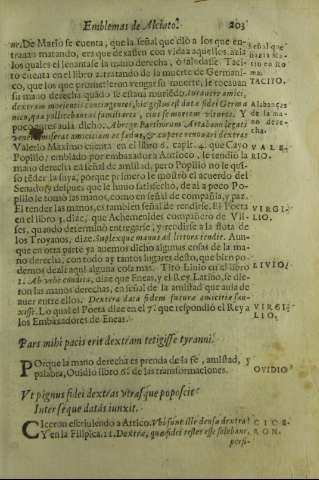 Emblemas de Alciato. 203
ne. De Mario se cuenta, que la señal que dio a los que en-
trauan matando, era que dexassen con vida aquellos, a los
los quales el leuantasse la mano derecha, o saludasse. Taci-
to cuenta en el libro 2. tratando de la muerte de Germani-
co, que los que prometieron vengar su muerte, le tocauan
su mano derecha quando se estaua muriendo.
dextram morientis contingentes,
Y
poco antes auia dicho.
Valerio Maximo cuenta en el libro 6. capit. 4. que Cayo
Popilio, embiado por embaxador a Antioco, le tendio la
mano derecha en señal de amistad, pero Popilio no le quiso
Senado: y despues que le huuo satisfecho, de ai a poco Po-
pilio le tomò las manos, como en señal de compañia, y paz.
El tender las manos, es tambien señal de rendirse. El Poeta
en el libro 3. dize, que Achemenides compañero de Vli-
ses, quando determinò entregarse, y rendirse a la flota de
los Troyanos, dize. Supplexque manus ad littora tendit. Aun-
que en otra parte ya auemos dicho algunas cosas de la ma-
no derecha, con todo ay tantos lugares desto, que bien po-
demos dezir aqui alguna cosa mas. Tito Liuio en el libro
1. Ab vrbe condita, dize que Eneas, y el Rey Latino, se die-
ron las manos derechas, en señal de la amistad que auia de
auer entre ellos. Dextera data fidem futuræ amicitiæ san-
xisse. Lo qual el Poeta dize en el 7. que respondio el Rey a
los Embaxadores de Eneas.
Pars mihi pacis erit dextram tetigisse tyranni.
Porque la mano derecha es prenda de la fe, amistad, y
palabra, Ouidio libro 6. de las transformaciones.
Vt pignus fidei dextras vtrasque poposcit
Inter se que datas iunxit.
Ciceron escriuiendo a Attico. Vbi sunt illæ densæ dextræ?
Y en la Filipica. 11. Dextræ, quæ fidei testes esse solebant,
perfi-
TACITO.
Alabanças
de la ma-
no dere-
cha.
VALE-
RIO.
VIRGI-
LIO.
LIVIO.
VIRGI-
LIO.
OVIDIO
CICE-
RON.